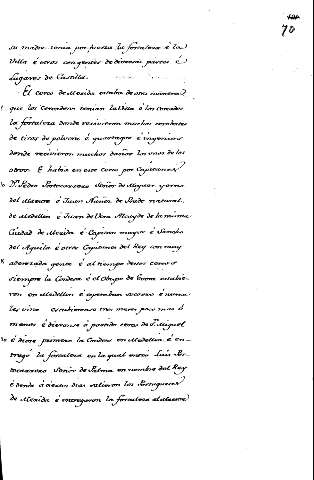 70
su madre tenia por fuerza la fortaleza é la
Villa é otros con gentes de diversas partes é
Lugares de Castilla.
El cerco de Merida estaba de esta manera
que los Cercadores tenian la Villa é los cercados
la fortaleza donde recivieron muchos combates
de tiros de polvora é quartagos é ingenios
donde recivieron muchos daños los unos de los
otros. E habia en este cerco por Capitanes
Dn. Pedro Portocarrero Señor de Moguer yerno
del Maestre é Juan Nuñez de Prado natural
de Medellin é Juan de Vera Alcayde de la misma
Ciudad de Merida é Capitan mayor é Sancho
del Aguila é otros Capitanes del Rey con muy
aderezada gente é al tiempo destos cercos
siempre la Condesa é el Obispo de Evora estubie-
ron en Medellin é esperaban socorro é nunca
les vino estubieron tres meses poco mas ó
menos é dieronse á partido cerca de Sn. Miguel
é diose primero la Condesa en Medellin é en-
tregó la fortaleza en la qual entró Luis Por-
tocarrero Señor de Palma en nombre del Rey
é dende á ciertos dias salieron los Portugueses
de Merida é entregaron la fortaleza al Maestre